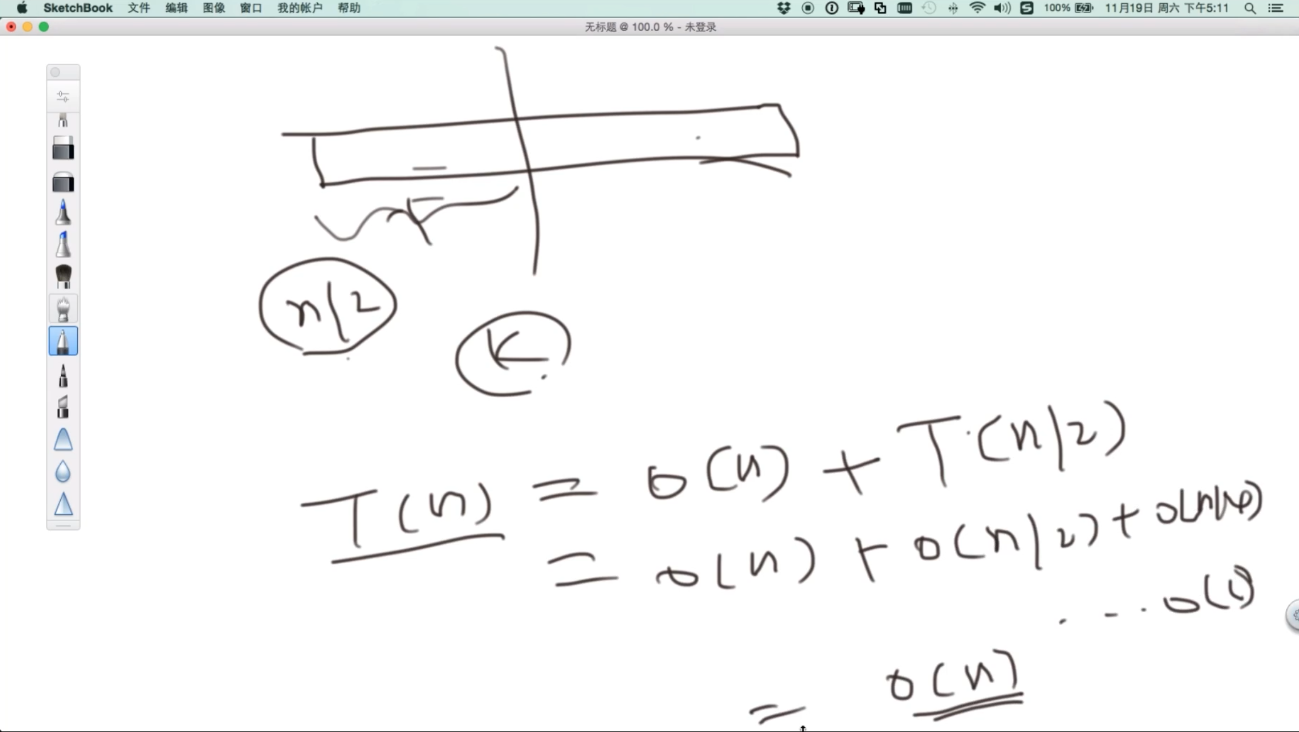 SketchBook 文件 编辑 图像 窗口 我的帐户 帮助 100% 11月19日 周六 下午5:11
无标题 @ 100.0 % - 未登录
n/2
K
T(n) = O(n) + T(n/2)
= O(n) + O(n/2) + O(n/4)
... O(1)
= O(n)